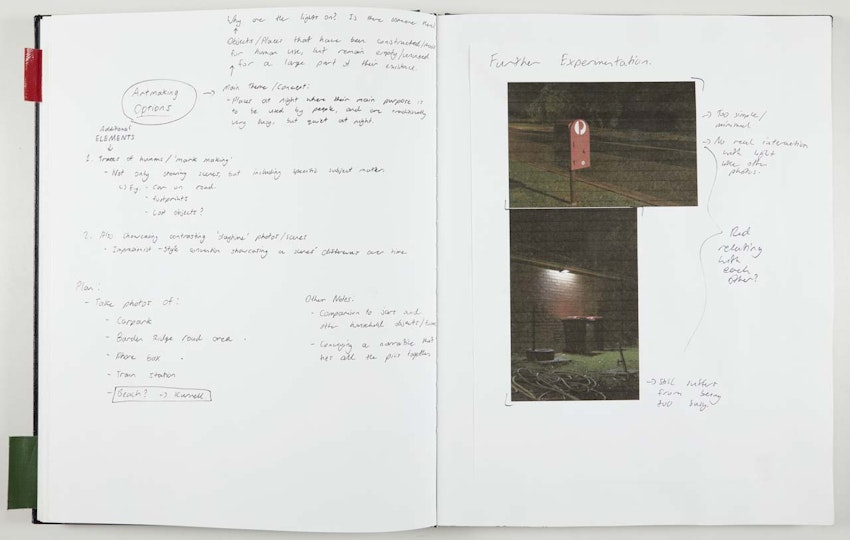 Why are the lights on? Is there someone there
Objects/Places that have been constructed/
for human use, but remain empty/unused
for a large part of their existence.
Artmaking
Options
→ Main Theme/Concept:
- Places at night where their main purpose is
to be used by people, and are
very busy, but quiet at night.
Additional
ELEMENTS
1. Traces of humans/'mark making'
- Not only drawing scenes, but including specific subject matter.
↳ Eg. - Cars on road
- footprints
- Lost objects?
2. Also showcasing contrasting 'daytime' photos/scenes
- Impressionist-style convention showcasing a scenes' differences over time.
Plan:
- Take photos of:
- Carpark
- Barden Ridge road area
- Phone box
- Train Station
- Beach? → Kurnell
Other Notes:
- Comparison to and
other household
- Conveying a narrative that
ties all the pics together
Further Experimentation.
→ Too simple/
minimal
→ No real interaction
with light
like other
photos.
Red
relating
with
each
other?
→ Still suffers
from being
too busy.